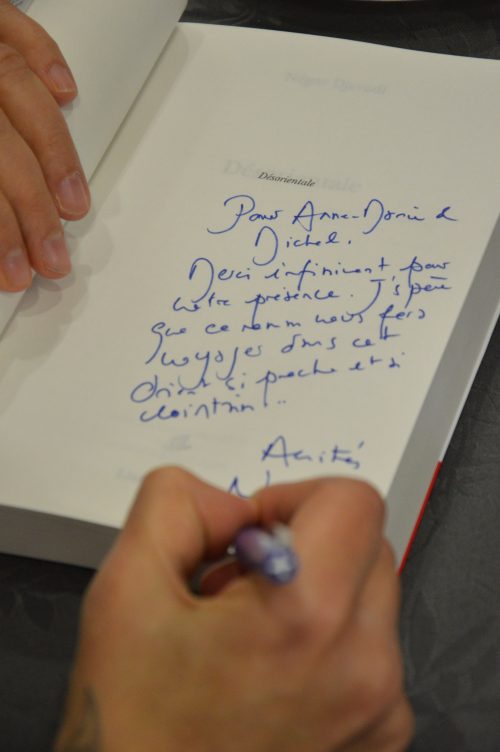 Négar Djavadi
Désorientale
Pour Anne-Marie &
Michel.
Merci infiniment pour
votre présence. J'espère
que ce roman vous fera
voyager dans cet
Orient si proche et si
lointain...
Amitiés
N